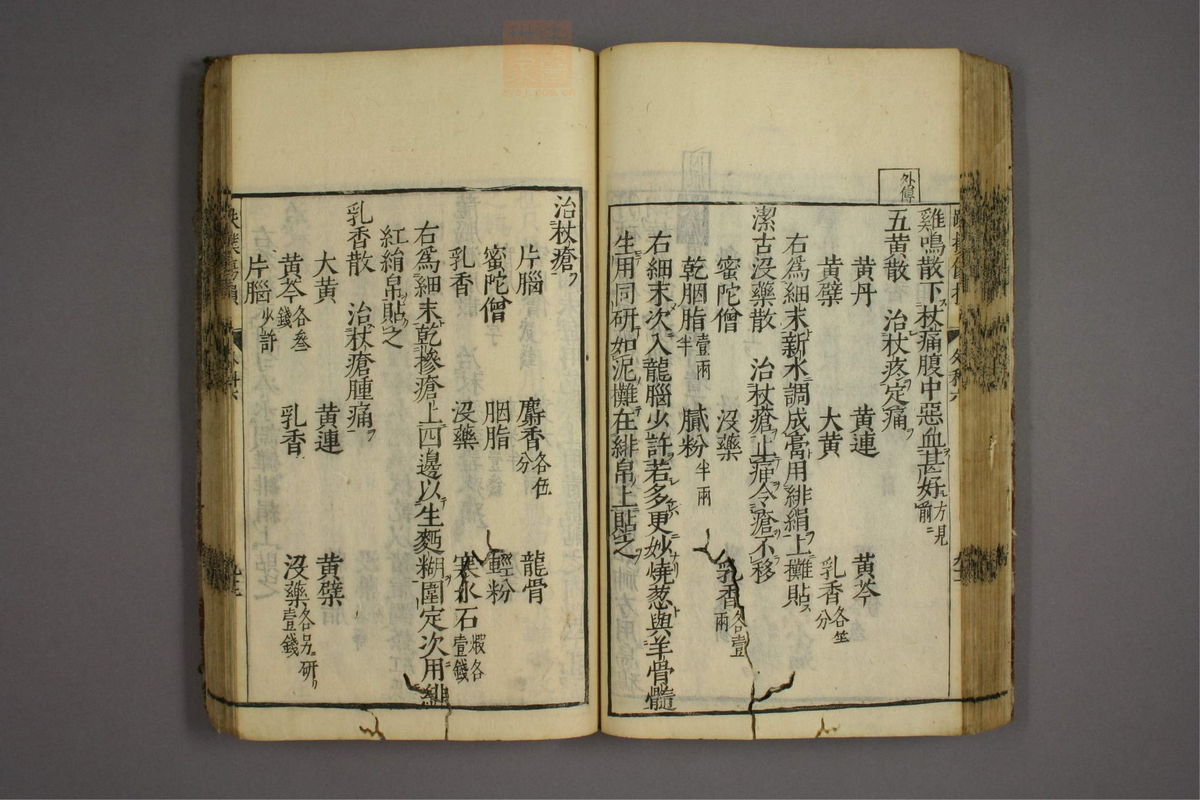 外傅
雞鳴散下杖痛腹中惡血甚好方見前
五黄散 治杖疼定痛
黄丹 黄連 黄芩
黄蘗 大黄 乳香各等分
右爲細末新水調成膏用緋絹上攤貼
潔古没藥散 治杖瘡止痛令瘡不移
蜜陀僧 没藥 乳香各壹兩
乾胭脂壹兩半 膩粉半兩
右細末次入龍腦少許若多更妙燒葱與羊骨髓
生用同研如泥攤在緋帛上貼之
治杖瘡
片腦 麝香各伍分 龍骨
蜜陀僧 胭脂 輕粉
乳香 没藥 寒水石煆各壹錢
右爲細末乾摻瘡上四邊以生麪糊圍定次用緋
紅絹帛貼之
乳香散 治杖瘡腫痛
大黄 黄連 黄蘗
黄芩各叁錢 乳香 没藥各另研壹錢
片腦少許